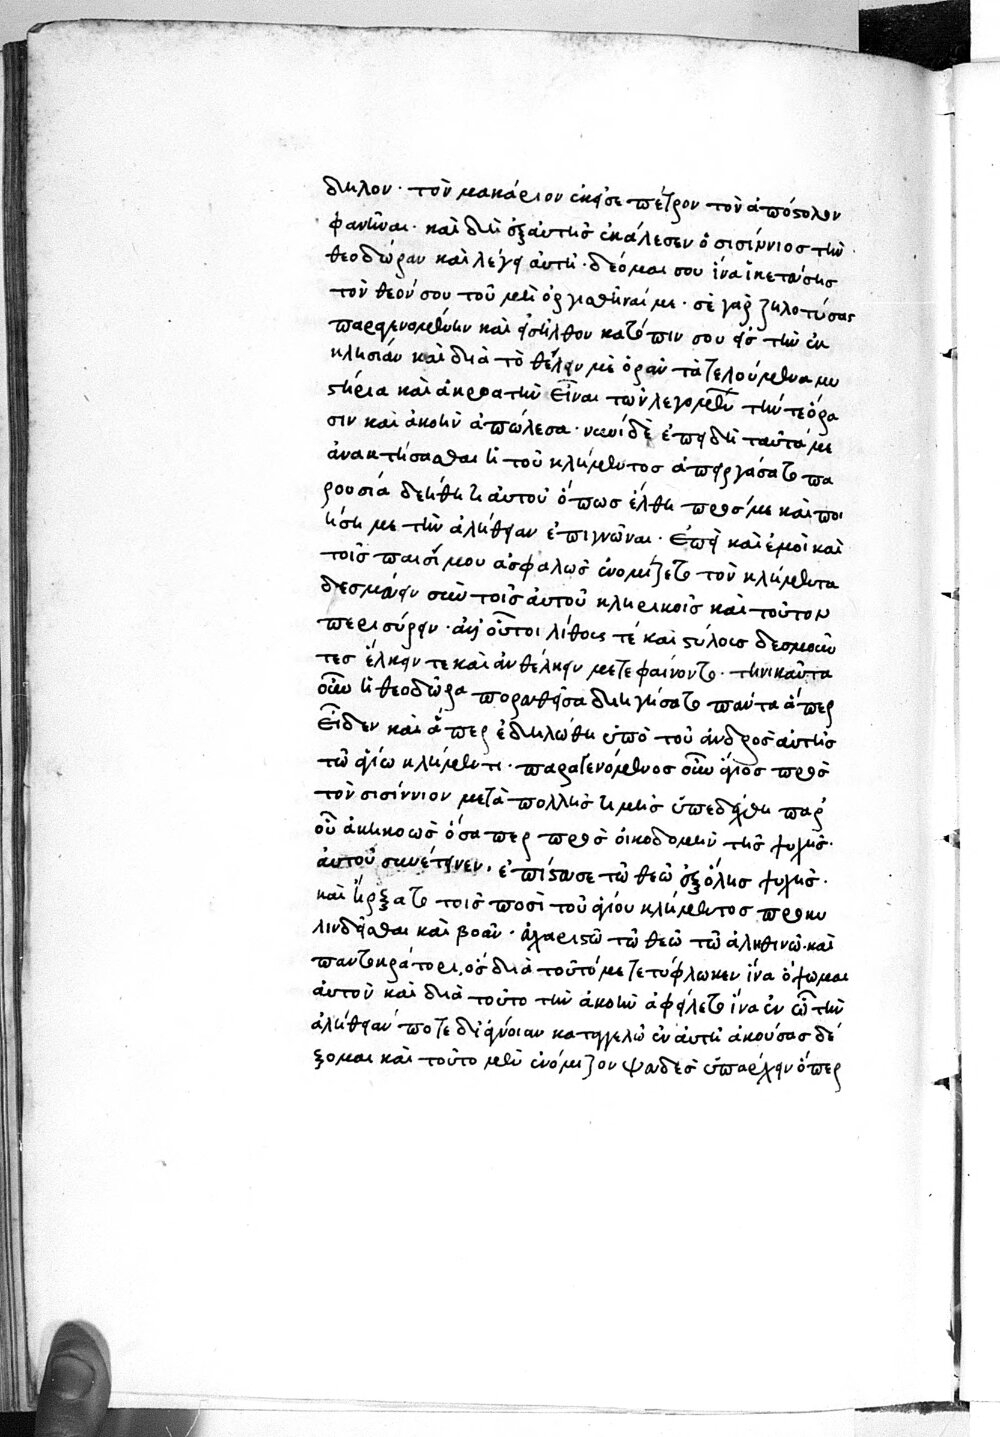 δηλον · τὸν μακάριον ἐκεῖσε πέτρον τὸν ἀπόστολον
φανῆναι · καὶ δὴ ἐξαυτῆς ἐκάλεσεν ὁ σισίννιος τὴν
θεοδώραν καὶ λέγει αὐτῆ · δέομαί σου ἵνα ἱκετεύσης
τὸν θεόν σου τοῦ μὴ ὀργισθῆναί με · σὲ γὰρ ζηλοτύσας
παραγενομένην καὶ εἰσῆλθον κατόπιν σου εἰς τὴν ἐκ
κλησίαν καὶ διὰ τὸ θέλειν με ὁρᾶν τὰ τελούμενα μυ
στήρια καὶ ἀκροατὴν εἶναι τῶν λεγομένων τήν τε ὅρα
σιν καὶ ἀκοὴν ἀπώλεσα · νυνὶ δὲ ἐπειδὴ ταῦτά με
ἀνακτήσασθαι ἡ τοῦ κλήμεντος ἀπειργάσατο πα
ρουσία δεήθητι αὐτοῦ ὅπως ἔλθη πρός με καὶ ποι
ήση με τὴν ἀλήθειαν ἐπιγνῶναι · ἐπεὶ καὶ ἐμοὶ καὶ
τοῖς παισί μου ἀσφαλῶς ἐνομίζετο τὸν κλήμεντα
δεσμεύειν σὺν τοῖς αὐτοῦ κληρικοῖς καὶ τοῦτον
περισύρειν · οὗτοι λίθους τὲ καὶ ξύλοις δεσμοῦν
τες ἕλκειν τε καὶ ἀνθέλκειν μετεφαίνοντο · τηνικαῦτα
οὖν ἡ θεοδώρα πορευθεῖσα διηγήσατο πάντα ἅπερ
εἶδεν καὶ ἅπερ ἐδηλώθη ὑπὸ τοῦ ἀνδρὸς αὐτῆς
τῶ ἁγίω κλήμεντι · παραγενόμενος οὖν ἅγιος πρὸς
τὸν σισίννιον μετὰ πολλῆς τιμῆς ὑπεδέχθη παρ'
οὗ ἀκηκοὼς ὅσαπερ πρὸς οἰκοδομὴν τῆς ψυχῆς
αὐτοῦ συνέτεινεν, ἐπίστευσε τῶ θεῶ ἐξ ὅλης ψυχῆς ·
καὶ ἤρξατο τοῖς ποσὶ τοῦ ἁγίου κλήμεντος προκυ
λινδεῖσθαι καὶ βοᾶν · εὐχαριστῶ τῶ θεῶ τῶ ἀληθινῶ καὶ
παντοκράτορι, ὃς διὰ τοῦτό με τετύφλωκεν ἵνα ὄψωμαι
αὐτὸν καὶ διὰ τοῦτο τὴν ἀκοὴν ἀφείλετο ἵνα ἐν ὧ τὴν
ἀλήθειάν ποτε κατεγέλων ἐν αὐτῆ ἀκούσας δέ
ξομαι καὶ τοῦτο μὲν ἐνόμιζον ψαδὲς ὑπάρχειν ὅπερ